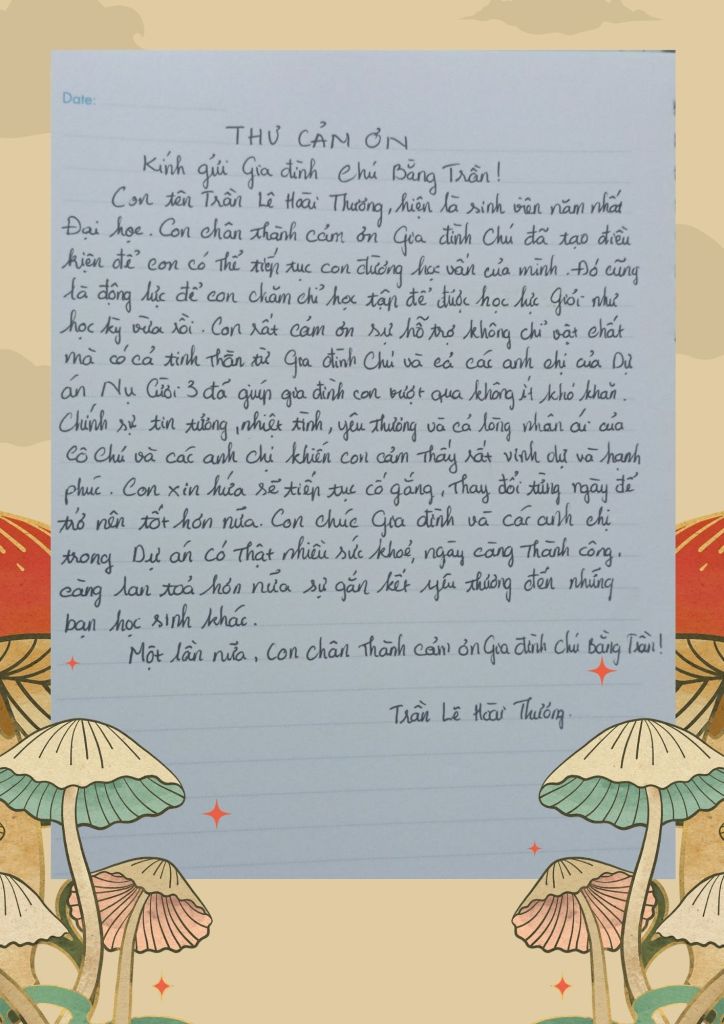 Date:
THƯ CẢM ƠN
Kính gửi Gia đình Chú Bằng Trần!
Con tên Trần Lê Hoài Thương, hiện là sinh viên năm nhất
Đại học. Con chân thành cảm ơn Gia đình Chú đã tạo điều
kiện để con có thể tiếp tục con đường học vấn của mình. Đó cũng
là động lực để con chăm chỉ học tập để được học lực Giỏi như
học kỳ vừa rồi. Con rất cảm ơn sự hỗ trợ không chỉ vật chất
mà có cả tinh thần từ Gia đình Chú và cả các anh chị của Dự
án Nụ Cười 3 đã giúp gia đình con vượt qua không ít khó khăn.
Chính sự tin tưởng, nhiệt tình, yêu thương và cả lòng nhân ái của
Cô Chú và các anh chị khiến con cảm thấy rất vinh dự và hạnh
phúc. Con xin hứa sẽ tiếp tục cố gắng, thay đổi từng ngày để
trở nên tốt hơn nữa. Con chúc Gia đình và các anh chị
trong Dự án có thật nhiều sức khoẻ, ngày càng thành công,
càng lan toả hơn nữa sự gắn kết yêu thương đến những
bạn học sinh khác.
Một lần nữa, con chân thành cảm ơn Gia đình Chú Bằng Trần!
Trần Lê Hoài Thương.